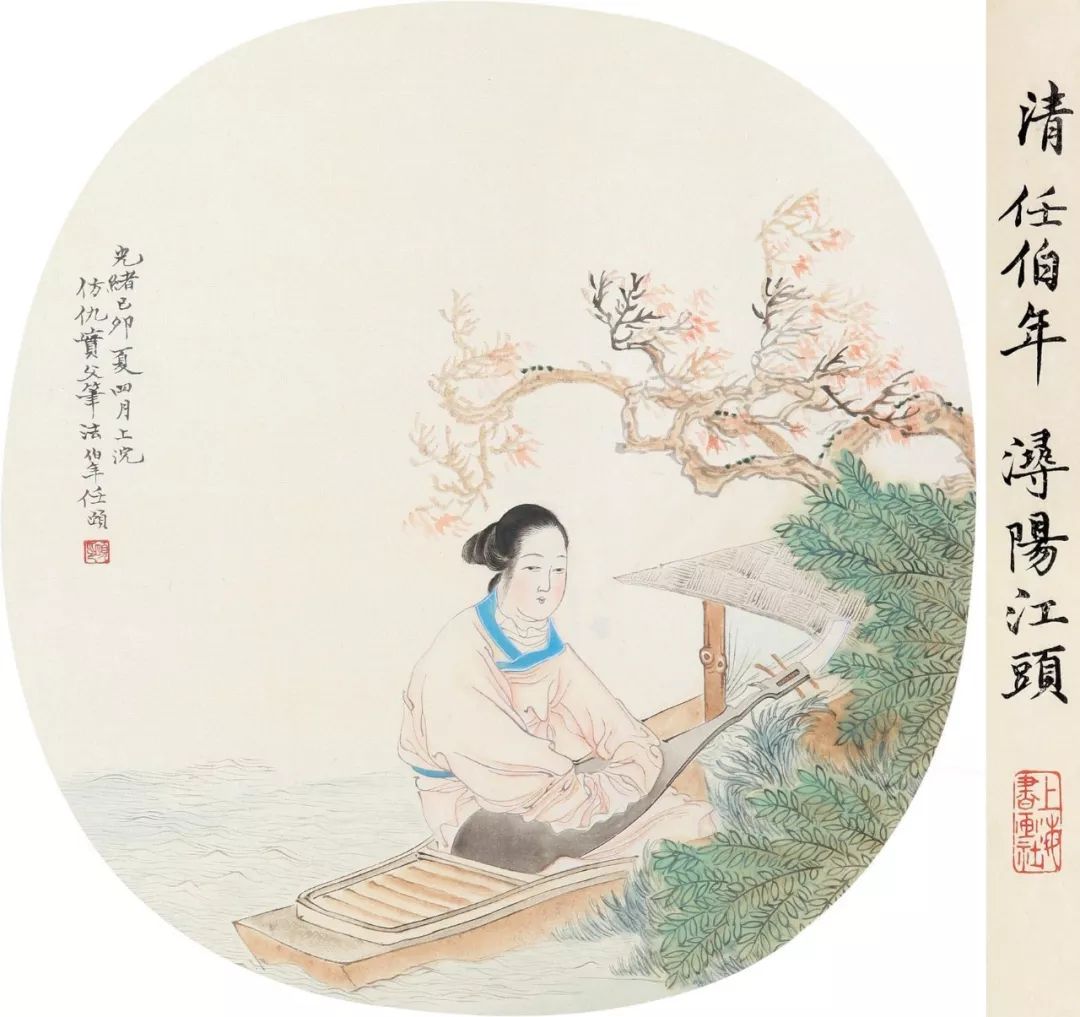 光緒己卯夏四月上浣
仿仇實父筆法伯年任頤
清 任伯年 潯陽江頭
上海
書画社